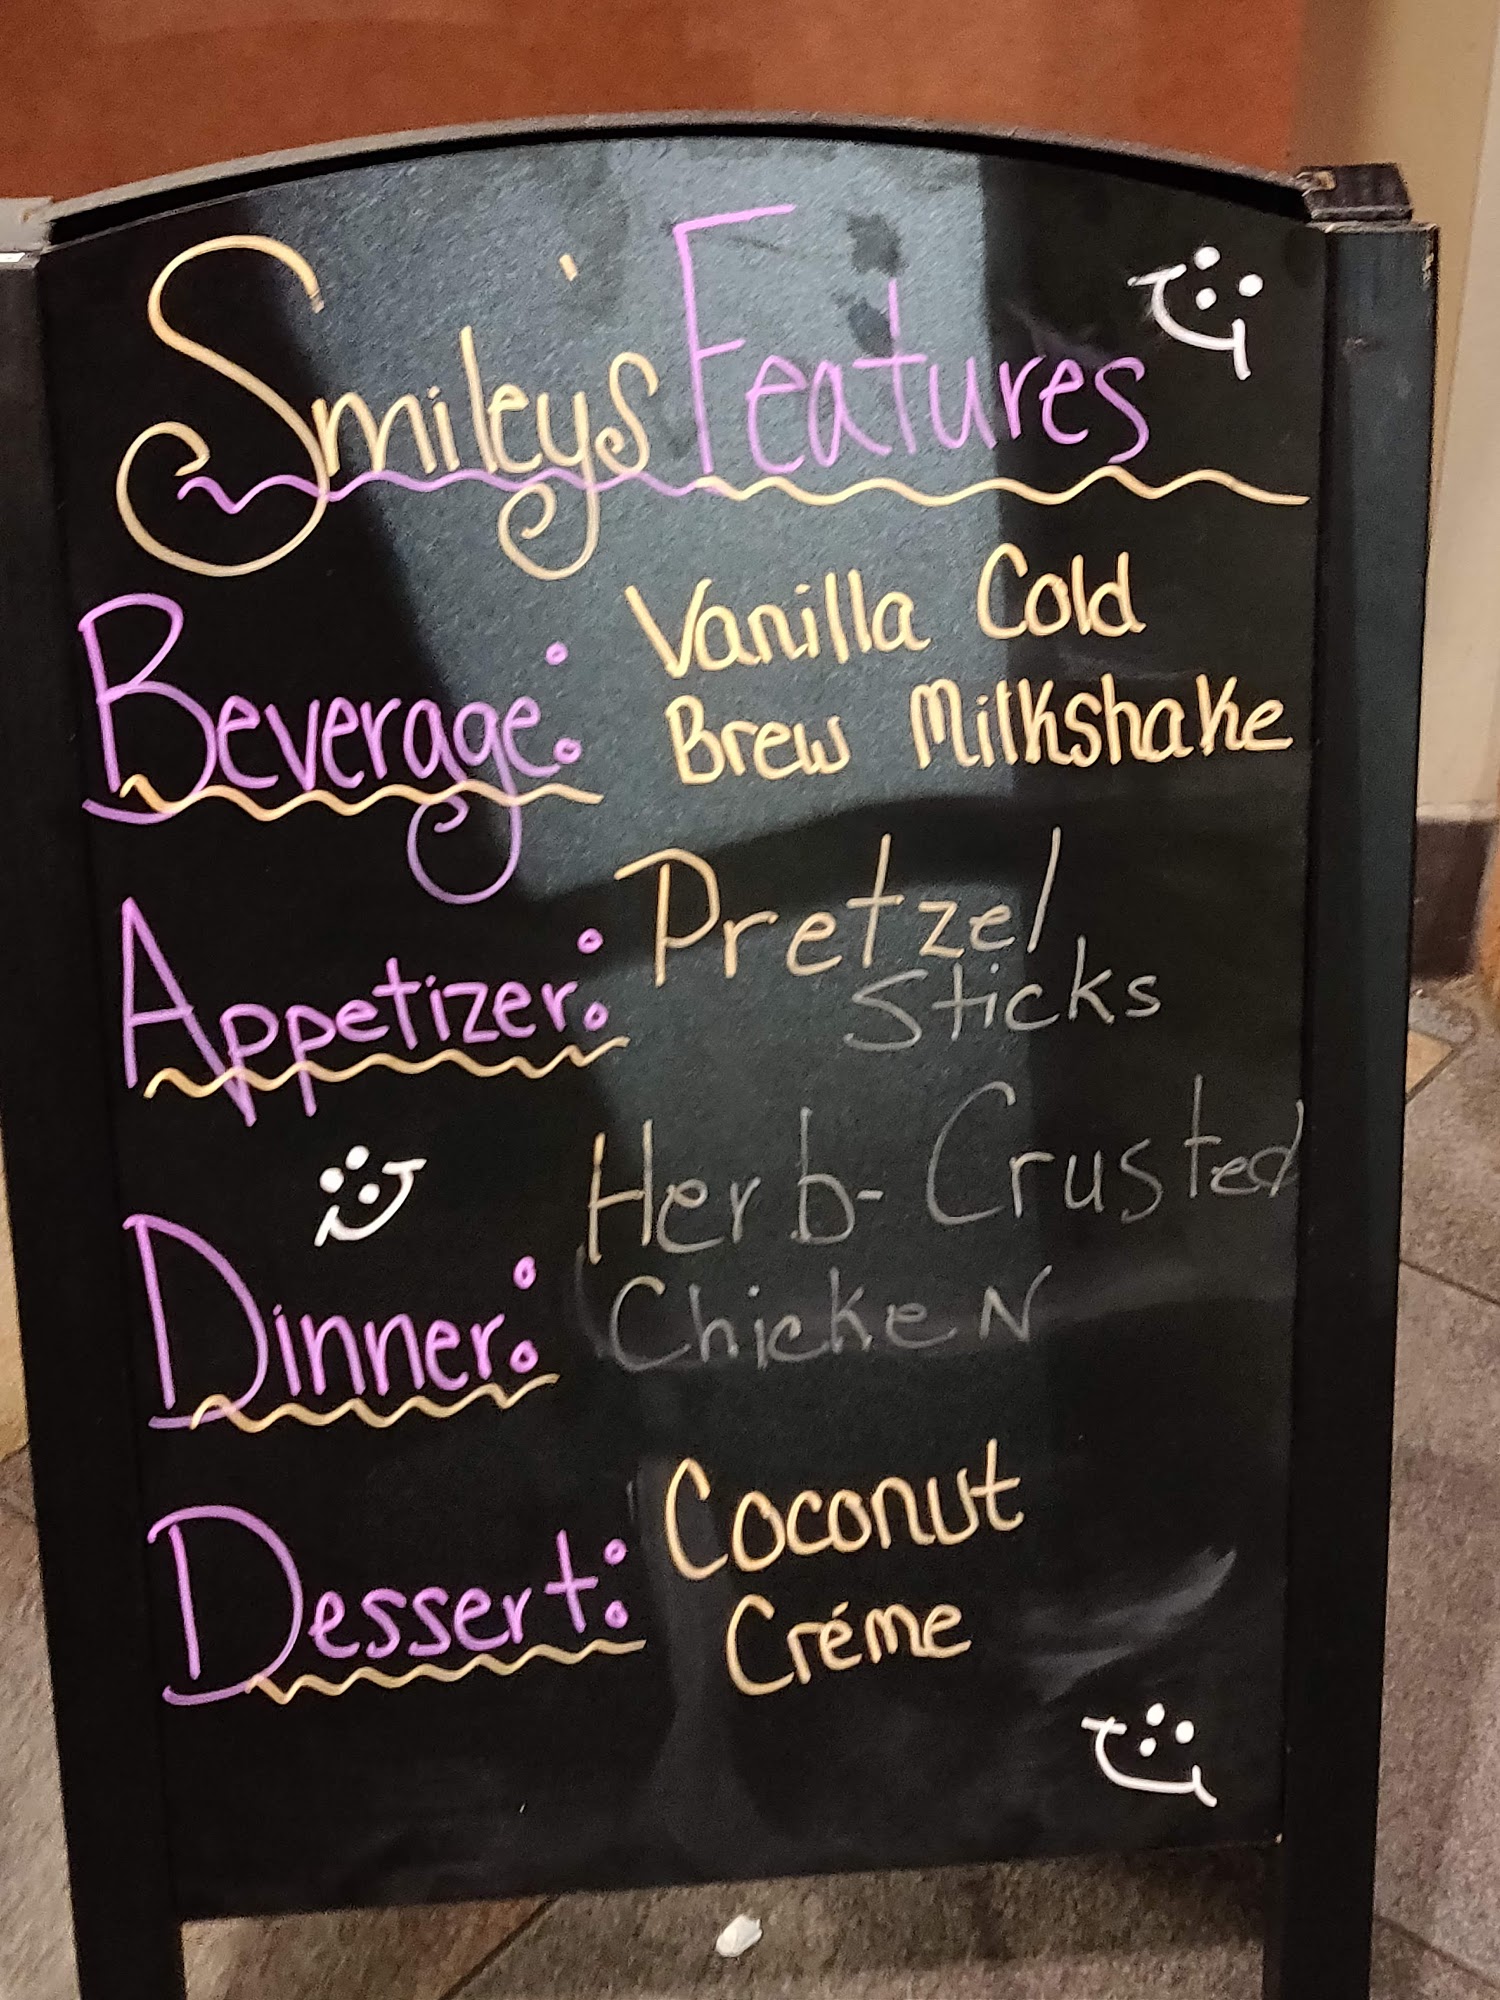 Smiley's Features
Beverage: Vanilla Cold
Brew Milkshake
Appetizer: Pretzel
Sticks
Dinner: Herb-Crusted
Chicken
Dessert: Coconut
Créme